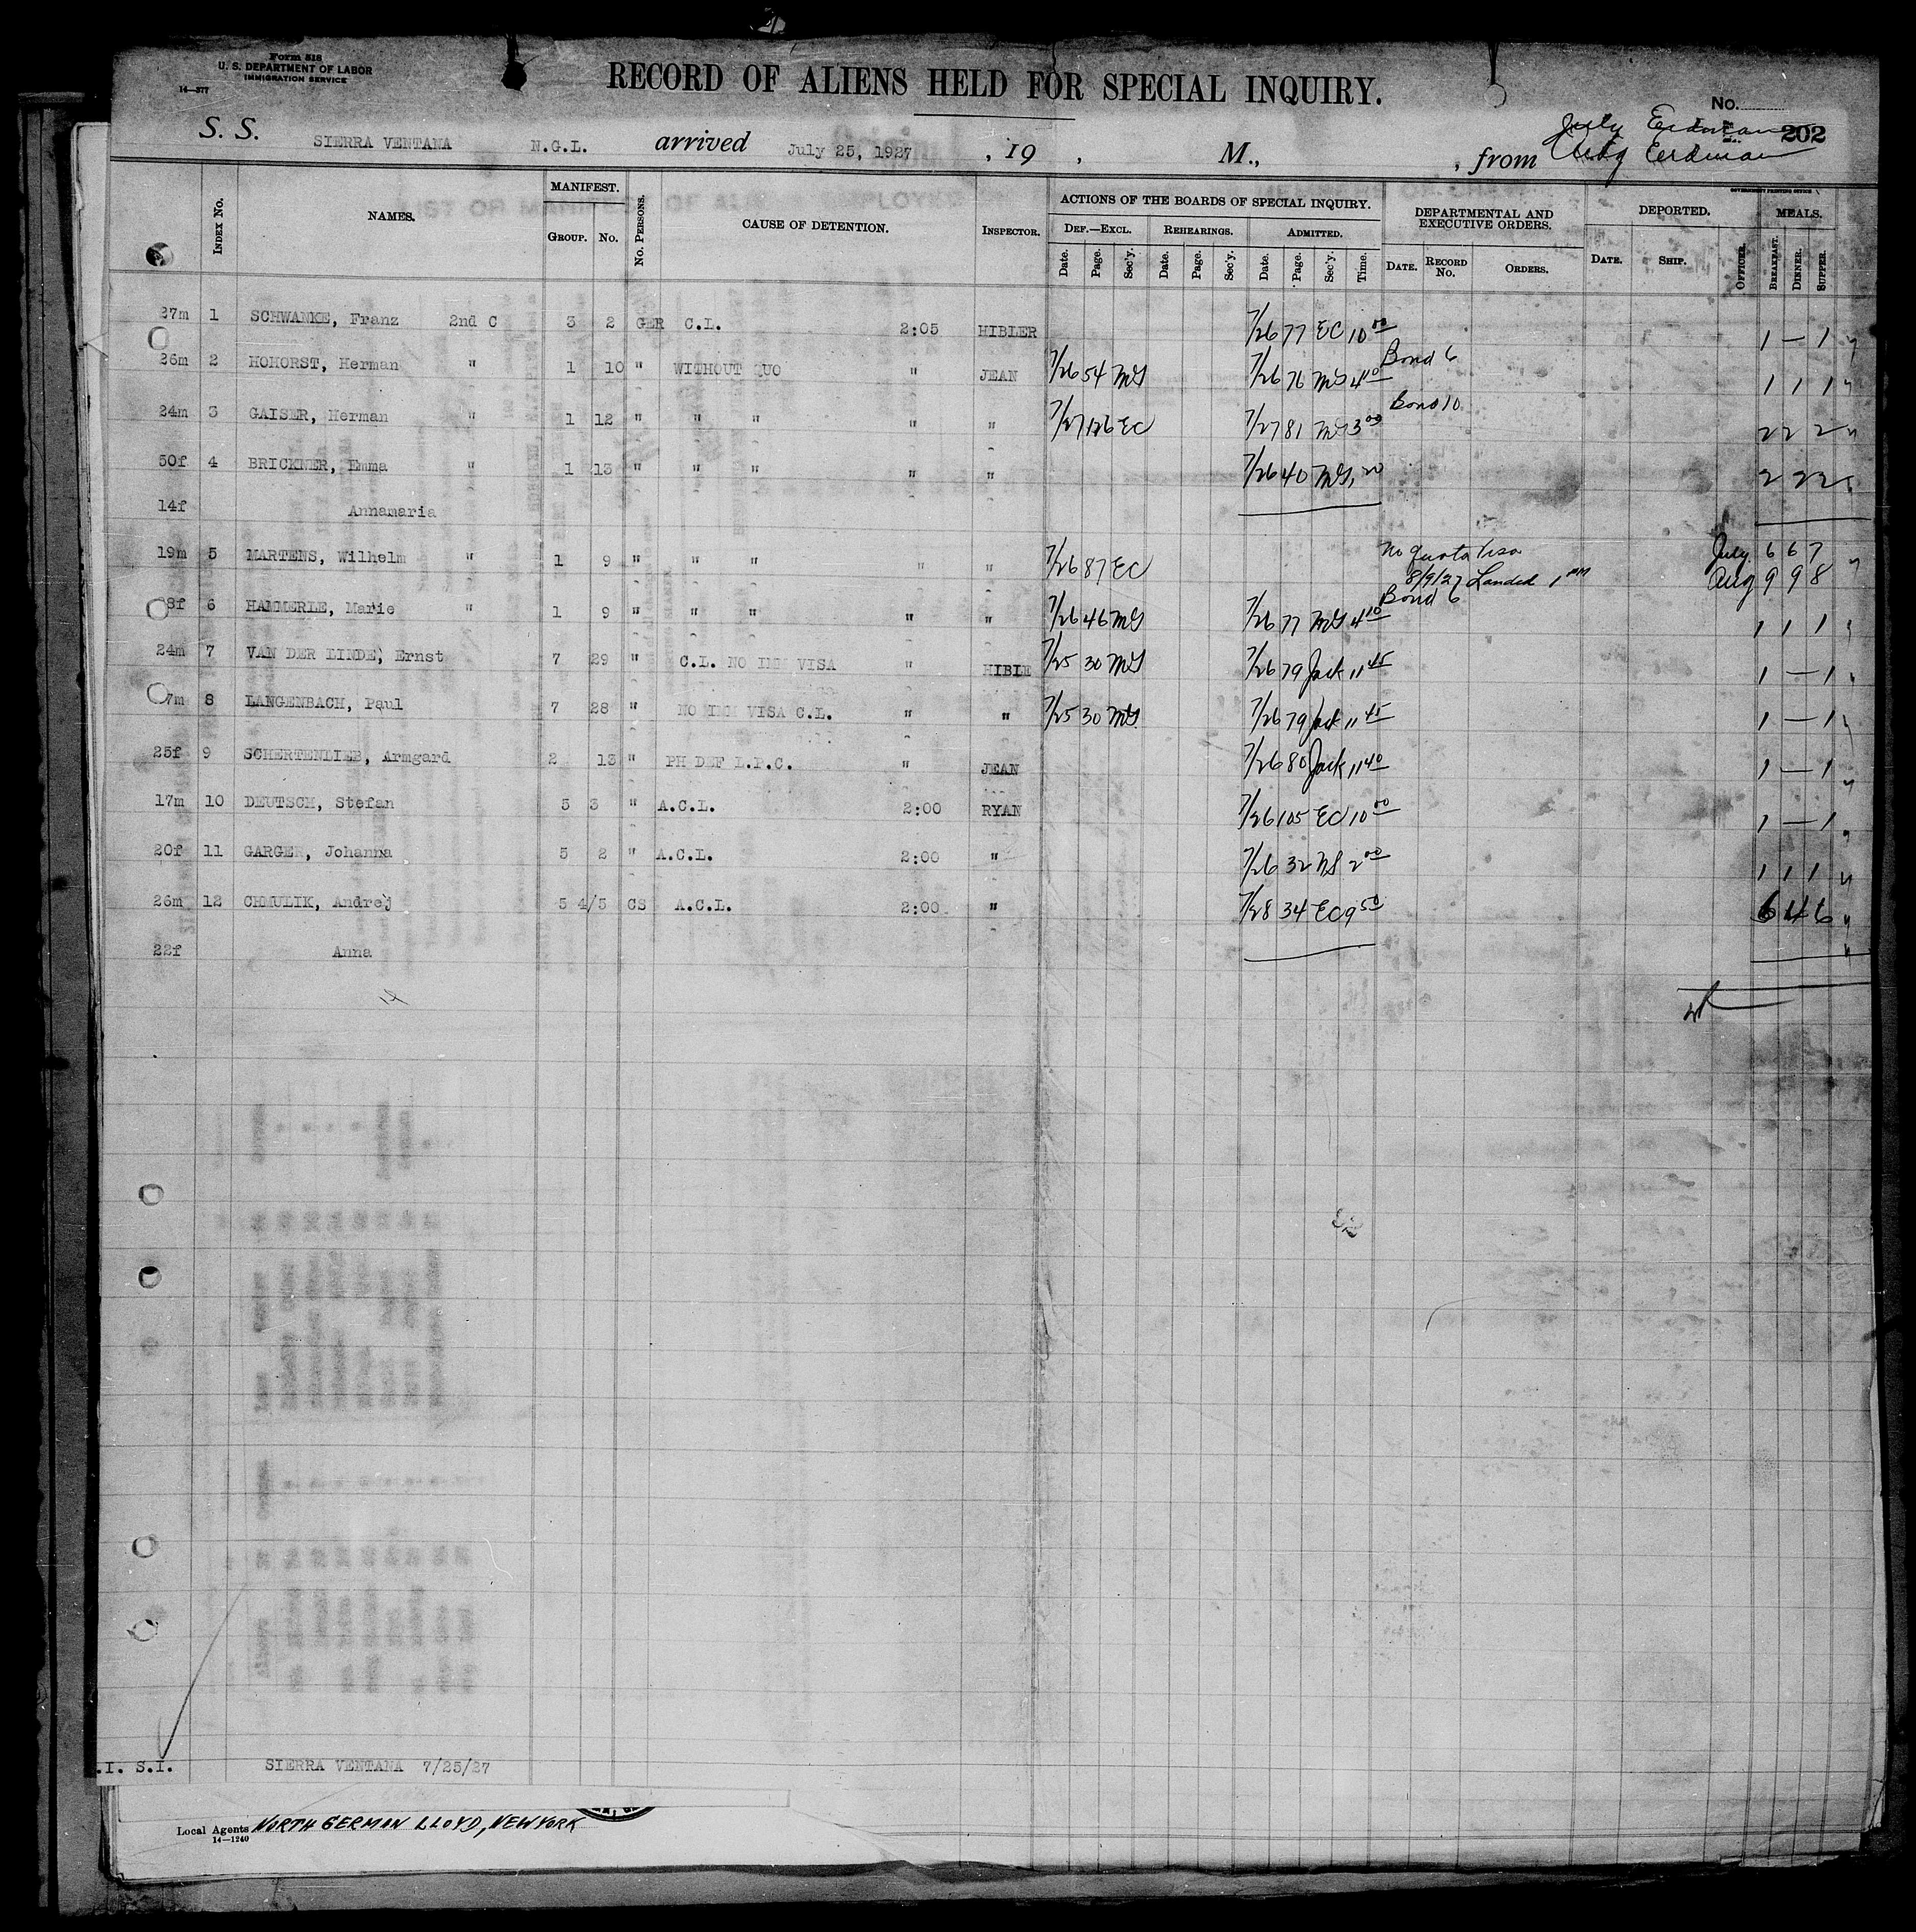 Form 518
U. S. DEPARTMENT OF LABOR
IMMIGRATION SERVICE
14—377
RECORD OF ALIENS HELD FOR SPECIAL INQUIRY.
No.
202
S. S. SIERRA VENTANA N.G.L. arrived July 25, 1927 , 19 , M., , from July Eerdman
Aug Eerdman
GOVERNMENT PRINTING OFFICE
INDEX No. NAMES. MANIFEST. GROUP. No. No. PERSONS. CAUSE OF DETENTION. INSPECTOR. ACTIONS OF THE BOARDS OF SPECIAL INQUIRY. DEPARTMENTAL AND EXECUTIVE ORDERS. DEPORTED. MEALS.
DEF.—EXCL. REHEARINGS. ADMITTED.
Date. Page. Sec'y. Date. Page. Sec'y. Date. Page. Sec'y. Time. DATE. RECORD No. ORDERS. DATE. SHIP. OFFICER. BREAKFAST. DINNER. SUPPER.
27m 1 SCHWANKE, Franz 2nd C 3 2 GER C.L. 2:05 HIBLER 7/26 77 EC 10 00 1 — 1
26m 2 HOHORST, Herman " 1 10 " WITHOUT QUO " JEAN 7/26 54 MS 7/26 76 MS 4 10 Bond 6 1 1 1
24m 3 GAISER, Herman " 1 12 " " " " " 7/27 126 EC 7/27 81 MS 3 00 Bond 10 2 2 2
50f 4 BRICKNER, Emma " 1 13 " " " " " 7/26 40 MS 2 2 2
14f Annamaria
19m 5 MARTENS, Wilhelm " 1 9 " " " " " 7/26 87 EC No Quota Visa July 6 6 7
8/9/27 Landed 1 PM Aug 9 9 8
8f 6 HAMMERLE, Marie " 1 9 " " " " " 7/26 46 MS 7/26 77 MS 4 10 Bond 6 1 1 1
24m 7 VAN DER LINDE, Ernst 7 29 " C.L. NO IMM VISA " HIBLE 7/25 30 MS 7/26 79 Jack 11 45 1 — 1
7m 8 LANGENBACH, Paul 7 28 " NO IMM VISA C.L. " " 7/25 30 MS 7/26 79 Jack 11 45 1 — 1
25f 9 SCHERTENLIEB, Armgard 2 13 " PH DEF L.P.C. " JEAN 7/26 80 Jack 11 40 1 — 1
17m 10 DEUTSCH, Stefan 5 3 " A.C.L. 2:00 RYAN 7/26 105 EC 10 00 1 — 1
20f 11 GARGER, Johanna 5 2 " A.C.L. 2:00 " 7/26 32 MS 2 00 1 1 1
26m 12 CHMULIK, Andrej 5 4/5 CS A.C.L. 2:00 " 7/28 34 EC 9 50 6 4 6
22f Anna
.I. S.I. SIERRA VENTANA 7/25/27
Local Agents NORTH GERMAN LLOYD, NEW YORK
14—1240